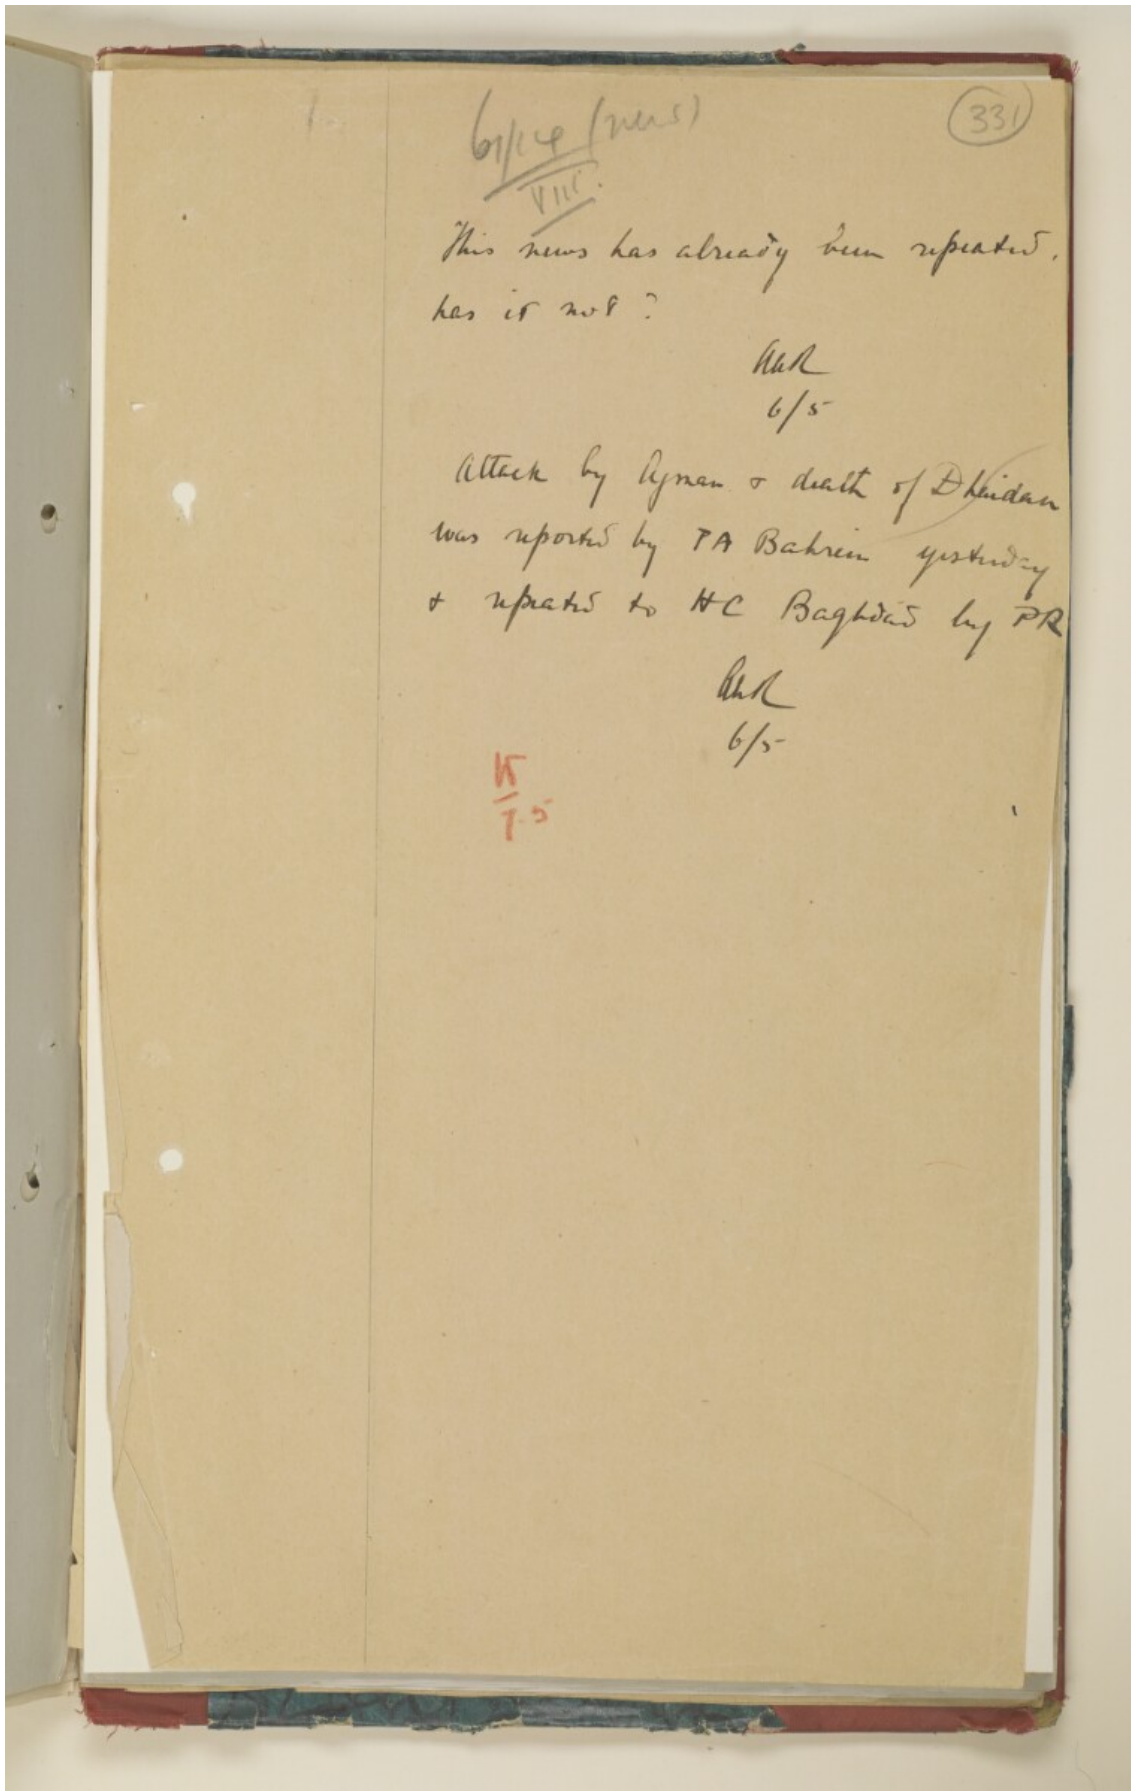 331
61/14 (news)
VIII.
This news has already been repeated,
has it not?
6/5
Attack by Ajman & death of Dhaidan
was reported by PA Bahrein yesterday
& repeated to HC Baghdad by PR
6/5
K
7.5